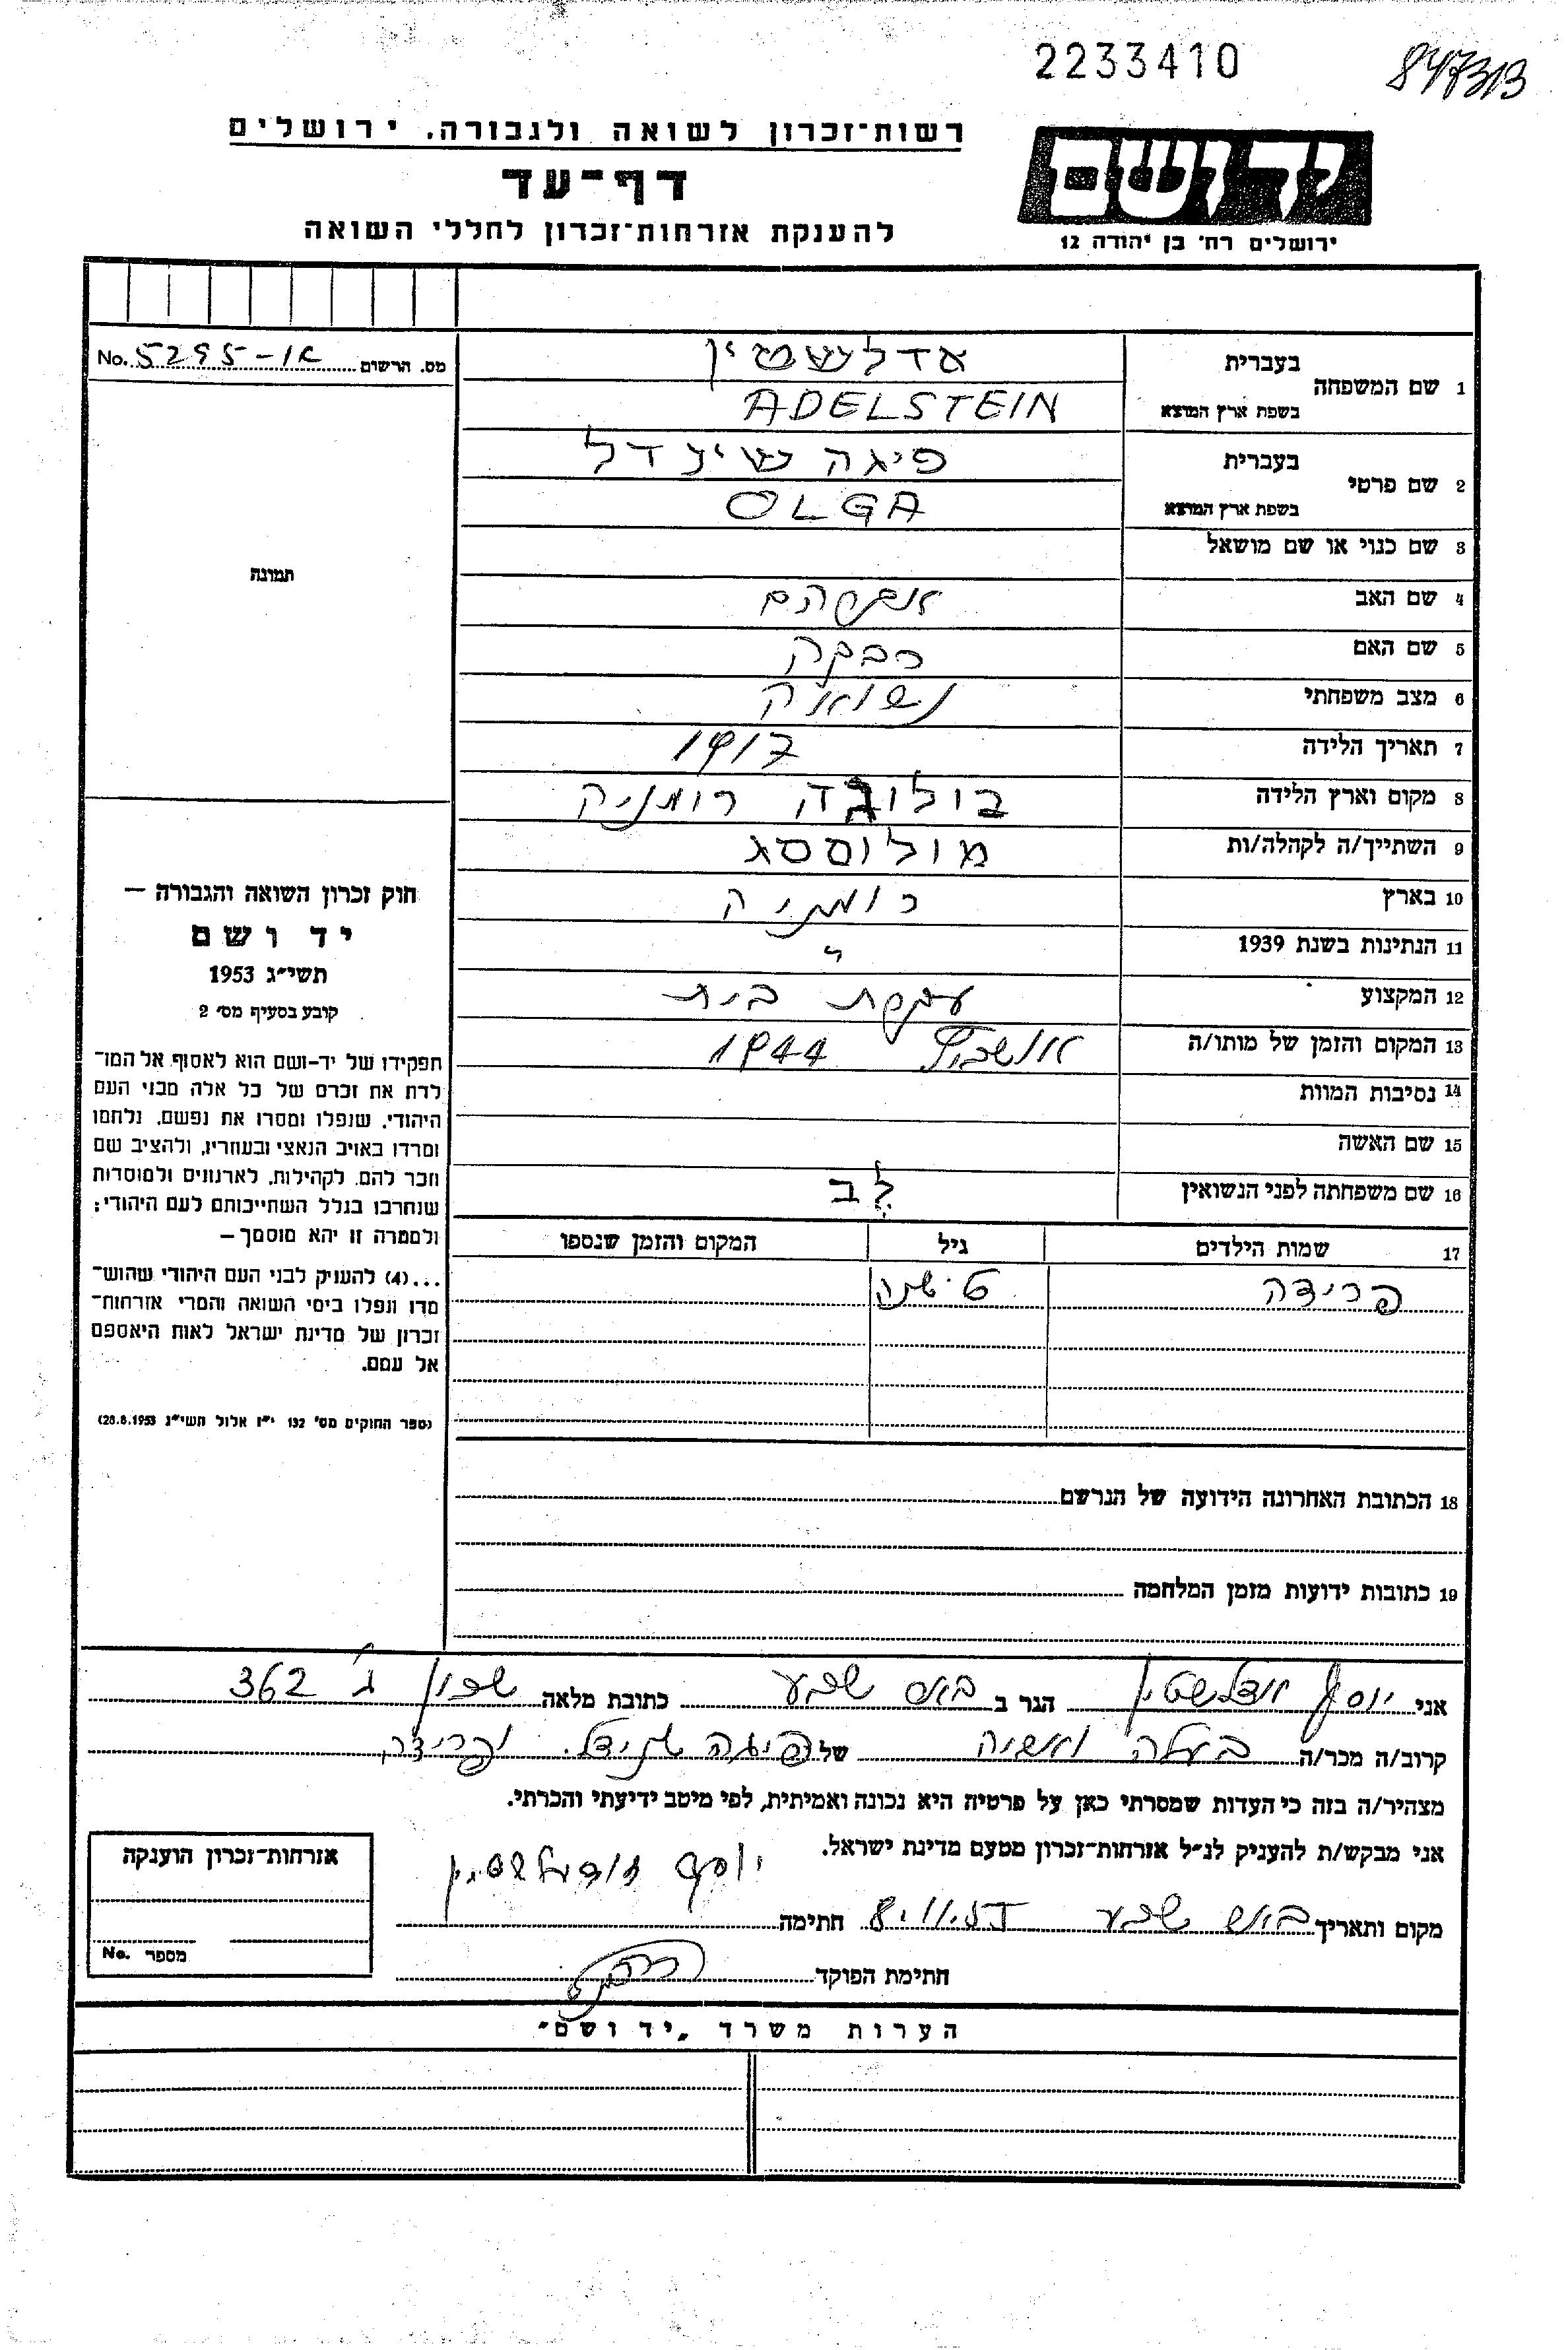 2233410
847313
רשות־זכרון לשואה ולגבורה. ירושלים
יד ושם
דף־עד
להענקת אזרחות־זכרון לחללי השואה
ירושלים רח' בן יהודה 12
מס. הרשום 5295-אי No.
1 שם המשפחה
בעברית אדלשטיין
בשפת ארץ המוצא ADELSTEIN
2 שם פרטי
בעברית פיגה שינדל
בשפת ארץ המוצא OLGA
3 שם כנוי או שם מושאל
4 שם האב אברהם
5 שם האם רבקה
6 מצב משפחתי נשואה
7 תאריך הלידה 1917
8 מקום וארץ הלידה בולובה רומניה
9 השתייך/ה לקהלה/ות מולוססג
10 בארץ רומניה
11 הנתינות בשנת 1939 "
12 המקצוע עקרת בית
13 המקום והזמן של מותו/ה אושביץ 1944
14 נסיבות המוות
15 שם האשה
16 שם משפחתה לפני הנשואין לב
17 שמות הילדים גיל המקום והזמן שנספו
פרידה שנה
18 הכתובת האחרונה הידועה של הנרשם
19 כתובות ידועות מזמן המלחמה
תמונה
חוק זכרון השואה והגבורה —
יד ושם
תשי״ג 1953
קובע בסעיף מס' 2
תפקידו של יד-ושם הוא לאסוף אל המו־
לדת את זכרם של כל אלה מבני העם
היהודי, שנפלו ומסרו את נפשם, נלחמו
ומרדו באויב הנאצי ובעוזריו, ולהציב שם
וזכר להם, לקהילות, לארגונים ולמוסדות
שנחרבו בגלל השתייכותם לעם היהודי;
ולמטרה זו יהא מוסמך —
...(4) להעניק לבני העם היהודי שהוש־
מדו ונפלו בימי השואה והמרי אזרחות־
זכרון של מדינת ישראל לאות היאספם
אל עמם.
(ספר החוקים מס' 132 י״ז אלול תשי״ג 28.8.1953)
אני יוסף אדלשטיין הגר ב באר שבע כתובת מלאה שכון ג' 362
קרוב/ה מכר/ה בעלה ואביה של פיגה שינדל ופרידה
מצהיר/ה בזה כי העדות שמסרתי כאן על פרטיה היא נכונה ואמיתית, לפי מיטב ידיעתי והכרתי.
אני מבקש/ת להעניק לנ״ל אזרחות־זכרון מטעם מדינת ישראל.
מקום ותאריך באר שבע חתימה יוסף אדלשטיין
חתימת הפוקד
אזרחות־זכרון הוענקה
מספר No.
הערות משרד „יד ושם"